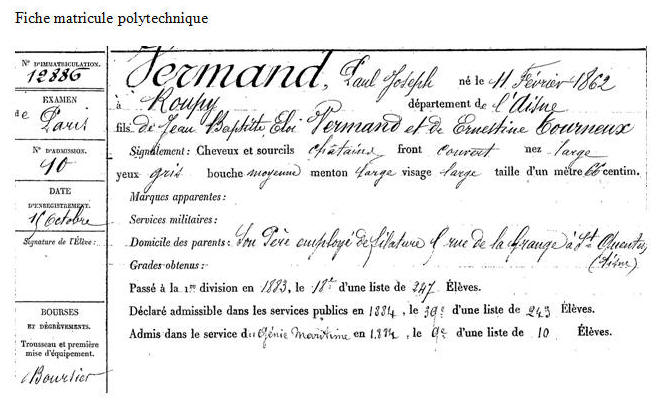 Fiche matricule polytechnique
N° D'IMMATRICULATION.
12886
EXAMEN
de Paris
N° D'ADMISSION.
40
DATE
D'ENREGISTREMENT.
15 Octobre
Signature de l'Élève :
BOURSES
ET DÉGRÈVEMENTS.
Trousseau et première
mise d'équipement.
Boursier
Vermand, Paul Joseph né le 11 Février 1862
à Roupy département de l'Aisne
fils de Jean Baptiste, Eloi Vermand et de Ernestine Tourneux
Signalement : Cheveux et sourcils châtains front couvert nez large
yeux gris bouche moyenne menton large visage large taille d'un mètre 66 centim.
Marques apparentes :
Services militaires :
Domicile des parents : Son Père employé de filature rue de la Grange à St Quentin
(Aisne)
Grades obtenus :
Passé à la 1re division en 1883, le 18e d'une liste de 247 Élèves.
Déclaré admissible dans les services publics en 1884, le 39e d'une liste de 243 Élèves.
Admis dans le service du Génie Maritime en 1884, le 9e d'une liste de 10 Élèves.